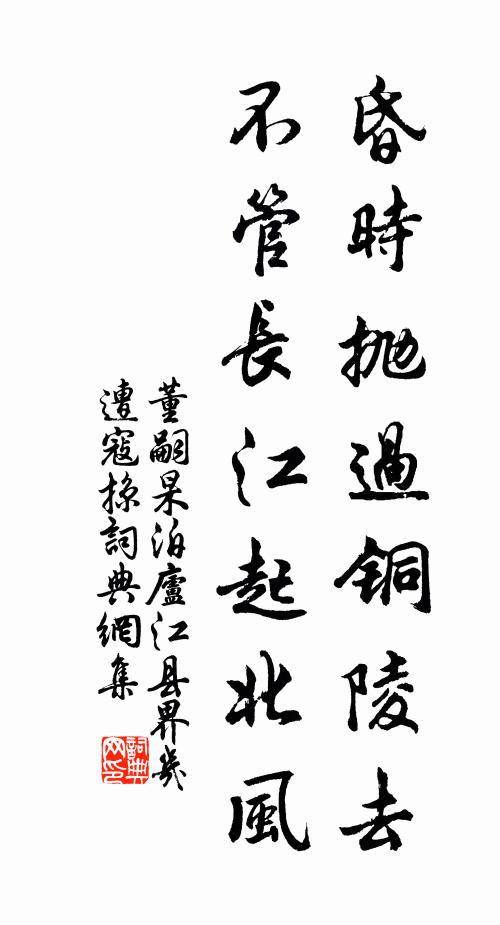 昏時抛過銅陵去
不管長江起北風
董嗣杲泊廬江县界幾
遭寇掠詞典網集
詞典
网印